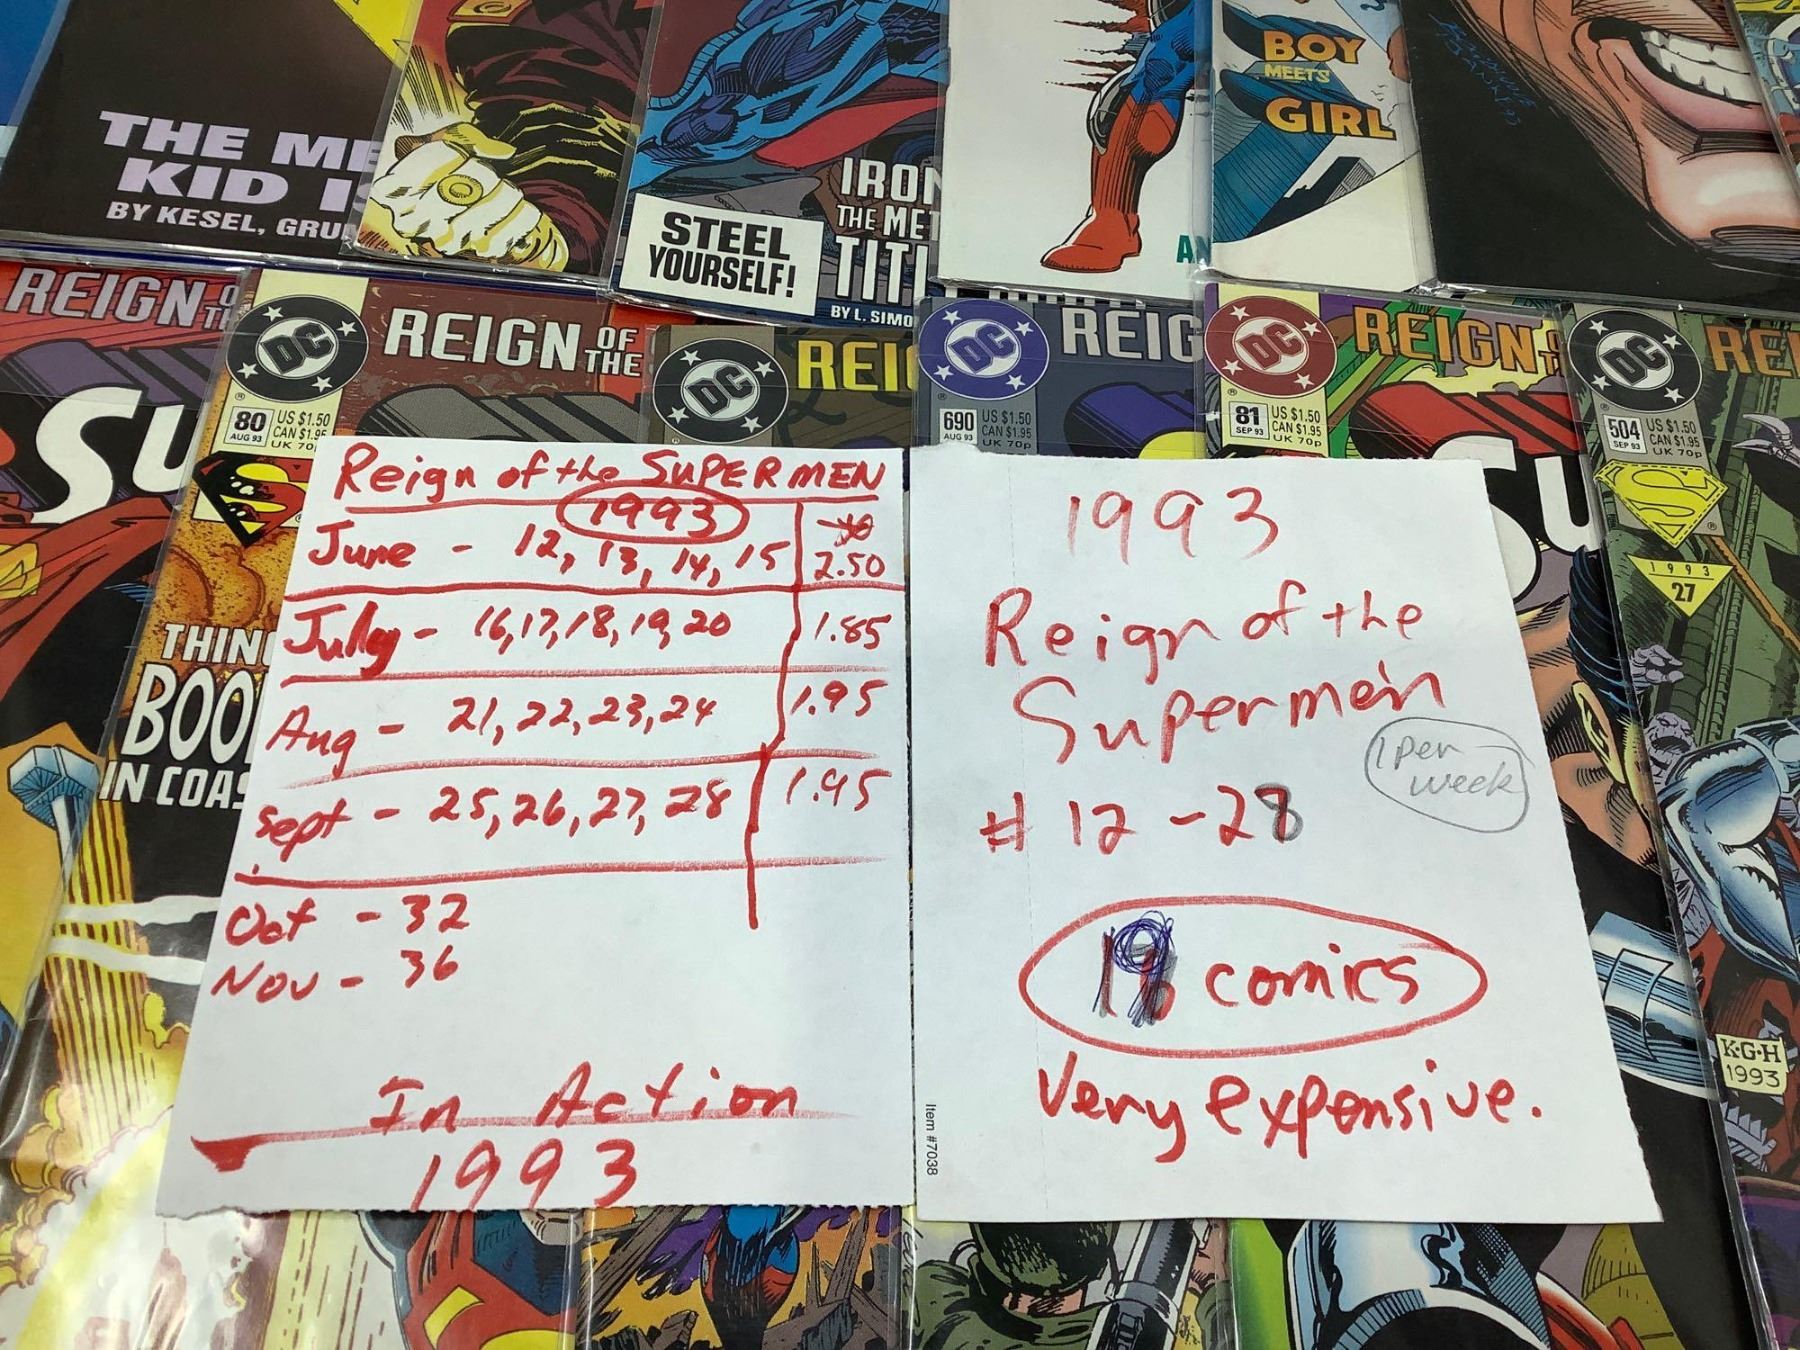 THE ME
KID IS
BY KESEL, GRU
STEEL
YOURSELF!
IRON
THE MET
TITA
BY L. SIMO
BOY
MEETS
GIRL
REIGN OF
SU
DC
80
AUG 93
US $1.50
CAN $1.95
UK 70p
REIGN OF
THE
THIN
BOO
IN COAS
DC
REI
DC
690
AUG 93
US $1.50
CAN $1.95
UK 70p
REIG
DC
81
SEP 93
US $1.50
CAN $1.95
UK 70p
REIGN
SU
DC
504
SEP 93
US $1.50
CAN $1.95
UK 70p
REI
1993
27
K·G·H
1993
Reign of the SUPERMEN
1993
June - 12, 13, 14, 15 2.50
July - 16, 17, 18, 19, 20 1.85
Aug - 21, 22, 23, 24 1.95
Sept - 25, 26, 27, 28 1.95
Oct - 32
Nov - 36
In Action
1993
1993
Reign of the
Supermen
1 per
week
# 12 - 28
comics
Very expensive.
Item #7038